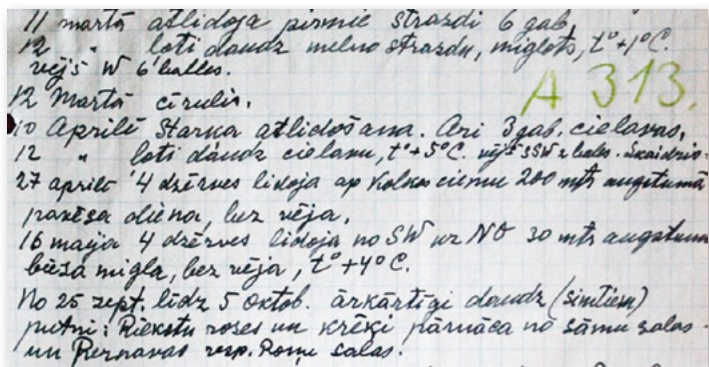 11 martā atlidoja pirmie strazdi 6 gab.
12 " ļoti daudz melno strazdu, miglots, t°+1°C.
vējš W 6 balles.
A 313.
12 Martā cīrulis.
10 Aprilī Starķa atlidošana. Ari 3 gab. cielavas,
12 " ļoti daudz cielavu, t°+5°C. vējš SSW 2 bales. skaidrs
27 aprilī 4 dzērves lidoja ap Kolkas ciemu 200 mtr augstumā
pavēsa diena, bez vēja,
16 maijā 4 dzērves lidoja no SW uz NO 30 mtr augstum
bieza migla, bez vēja, t°+4°C.
No 25 sept. līdz 5 oktob. ārkārtīgi daudz (simtiem)
putni: Riekstu rozes un krēķi pārnāca no Sāmu salas
un Pernavas resp. Roņu salas.